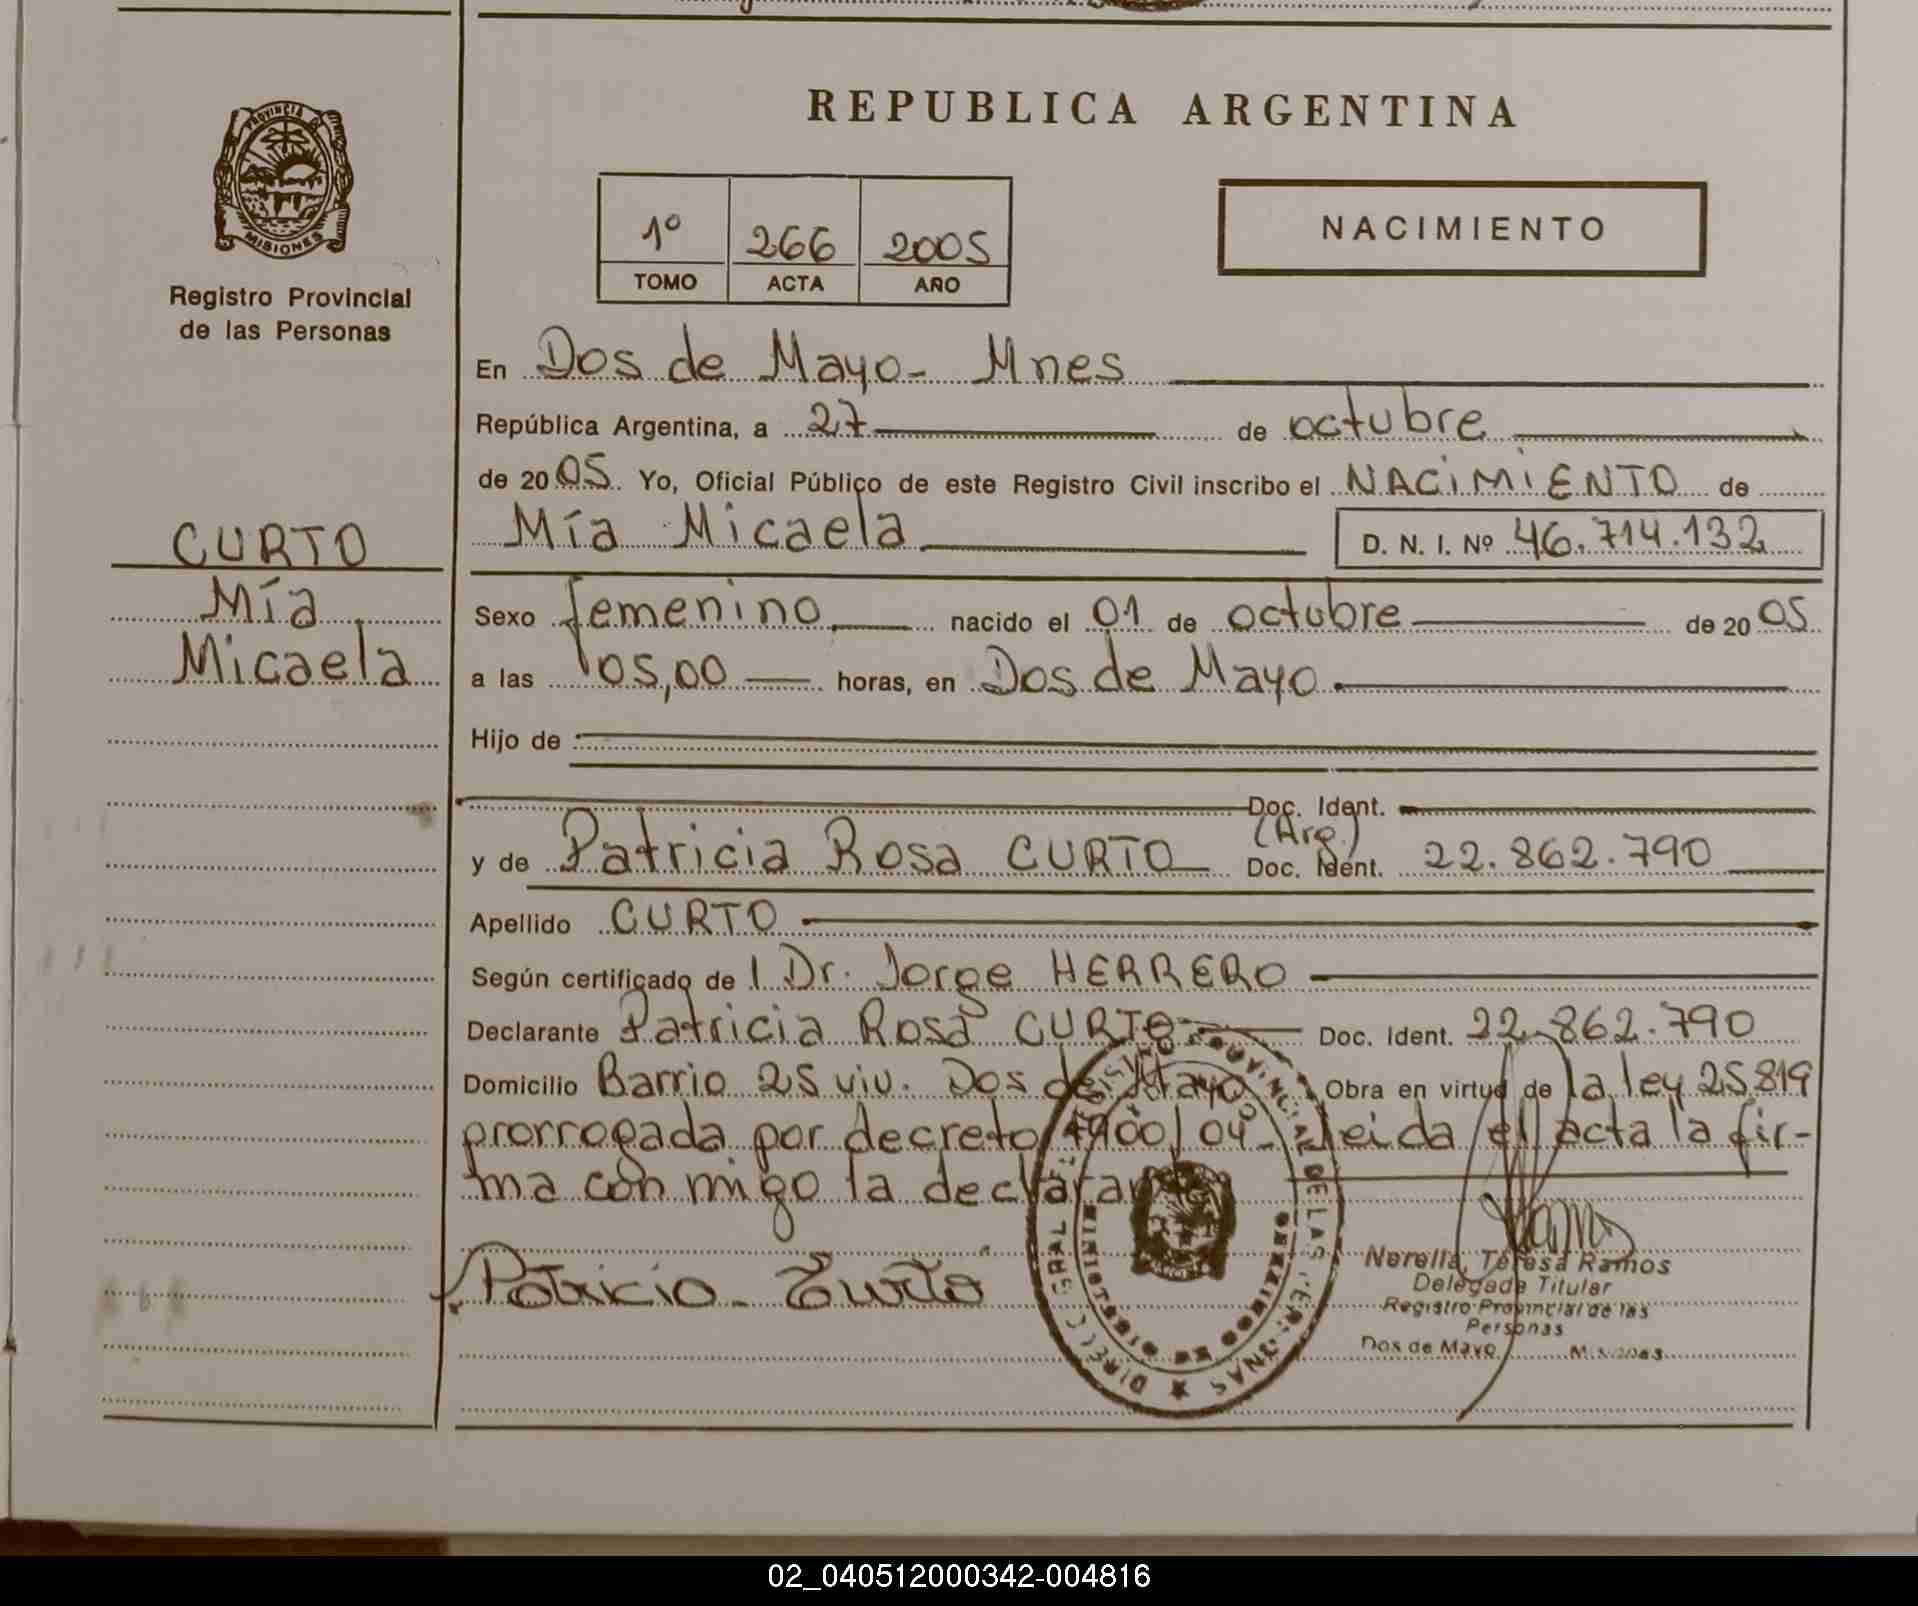 REPUBLICA ARGENTINA
PROVINCIA DE
MISIONES
Registro Provincial
de las Personas
1º 266 2005
TOMO ACTA AÑO
NACIMIENTO
En Dos de Mayo- Mnes
República Argentina, a 27 de octubre
de 2005. Yo, Oficial Público de este Registro Civil inscribo el NACIMIENTO de
Mía Micaela D. N. I. Nº 46.714.132
CURTO
Mía
Micaela
Sexo femenino nacido el 01 de octubre de 2005
a las 05,00 horas, en Dos de Mayo
Hijo de
Doc. Ident.
(Arg.)
y de Patricia Rosa CURTO Doc. Ident. 22.862.790
Apellido CURTO
Según certificado de l Dr. Jorge HERRERO
Declarante Patricia Rosa CURTO Doc. Ident. 22.862.790
Domicilio Barrio 25 viv. Dos de Mayo Obra en virtud de la ley 25.819
prorrogada por decreto 1900/04- leida el acta la fir-
ma con migo la declarante
Patricia Curto
Norella, Teresa Ramos
Delegada Titular
Registro Provincial de las
Personas
Dos de Mayo
02_040512000342-004816